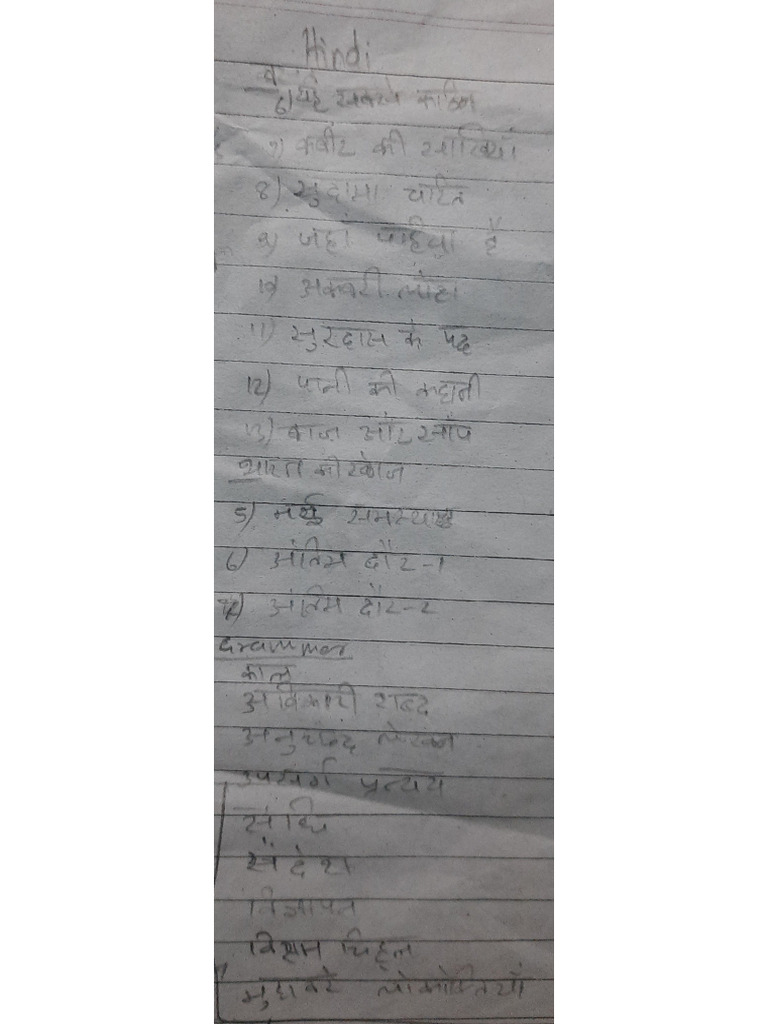 Hindi
व
6) यह सबसे कठिन
7) कबीर की साखियाँ
8) सुदामा चरित
9) जहाँ पहिया है
10) अकबरी लोटा
11) सुरदास के पद
12) पानी की कहानी
13) बाज और साँप
भारत की खोज
5) नयी समस्याएँ
6) अंतिम दौर-1
7) अंतिम दौर-2
Grammer
काल
अविकारी शब्द
अनुच्छेद लेखन
उपसर्ग प्रत्यय
संधि
संदेश
विज्ञापन
विराम चिह्न
मुहावरे लोकोक्तियाँ